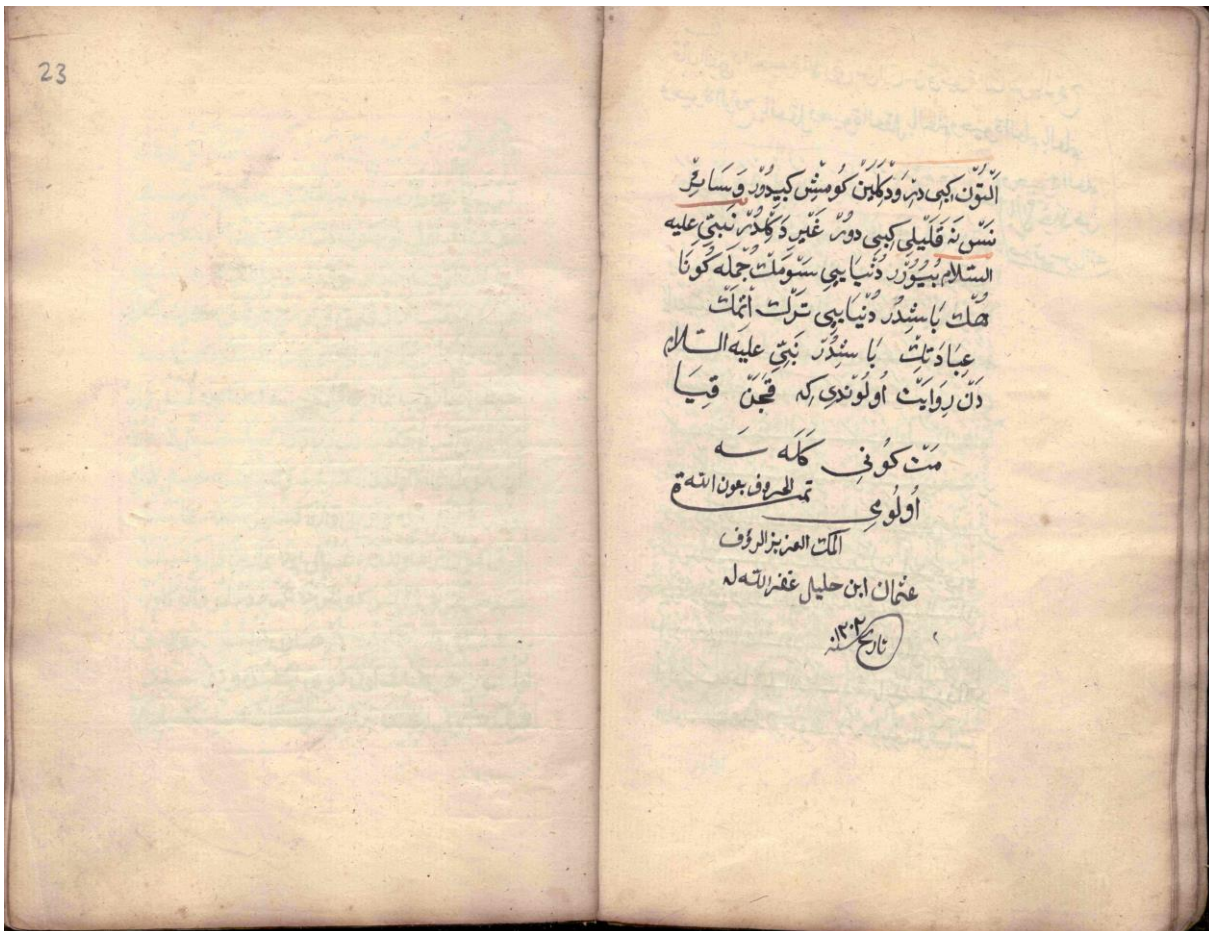 23
اَلْتُونْ كِبِى دِرْ وَدَكَلِينْ كُومِشْ كِبِيدُورْ وَسَائِرْ
نَسْنَه قَلَيْلِى كِبِى دُورْ غَيْرِ دَكِلْدُرْ نَبِيّ عليه
السلام بُيُوُرْر دُنْيَايِى سَوْمَكْ جُمْلَه كُونَا
هُكْ بَاشِدُرْ دُنْيَايِى تَرْكْ اتْمَكْ
عِبَادَتِكْ بَاشِدُرْ نَبِيّ عليه السلام
دَنْ رِوَايَتْ اُولُونْدِى كه قَچَنْ قِيَا
مَتْ كُونِى كَلَه سَه
اُولُوى
تمت الحروف بعون الله
الملك العزيز الرؤف
عثمان ابن حليل غفر الله له
تاريخ سنه ١٣٠٢